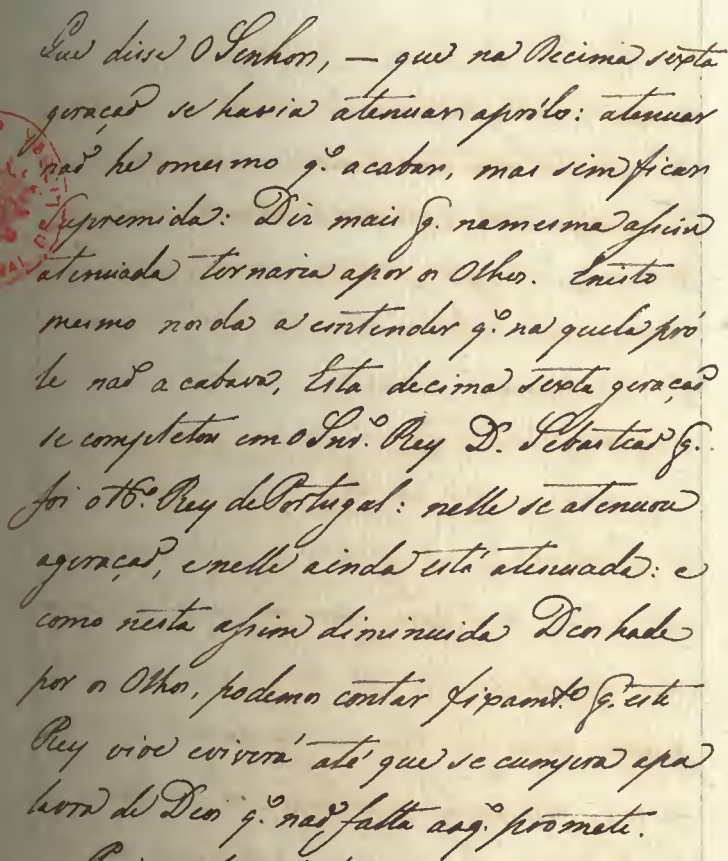 Que disse O Senhor, — que na Decima sexta
geraçaõ se havia atenuar apróle: atenuar
naõ he omesmo q.º acabar, mas sim ficar
supremida: Diz mais q. namesma assim
atenuada tornaria apor os Olhos. Enisto
mesmo nos da a entender q.º na quela pró
le naõ acabava, Esta decima sexta geraçaõ
se completou em o Snr.º Rey D. Sebasteaõ q.
foi o 16.º Rey de Portugal: nelle se atenuou
ageraçaõ, enelle ainda está atenuada: e
como nesta assim diminuida Deos hade
por os Olhos, podemos contar fixamt.º q. este
Rey vive eviverá até que se cumpra apa
lavra de Deos q.º naõ falta aoq. promete.